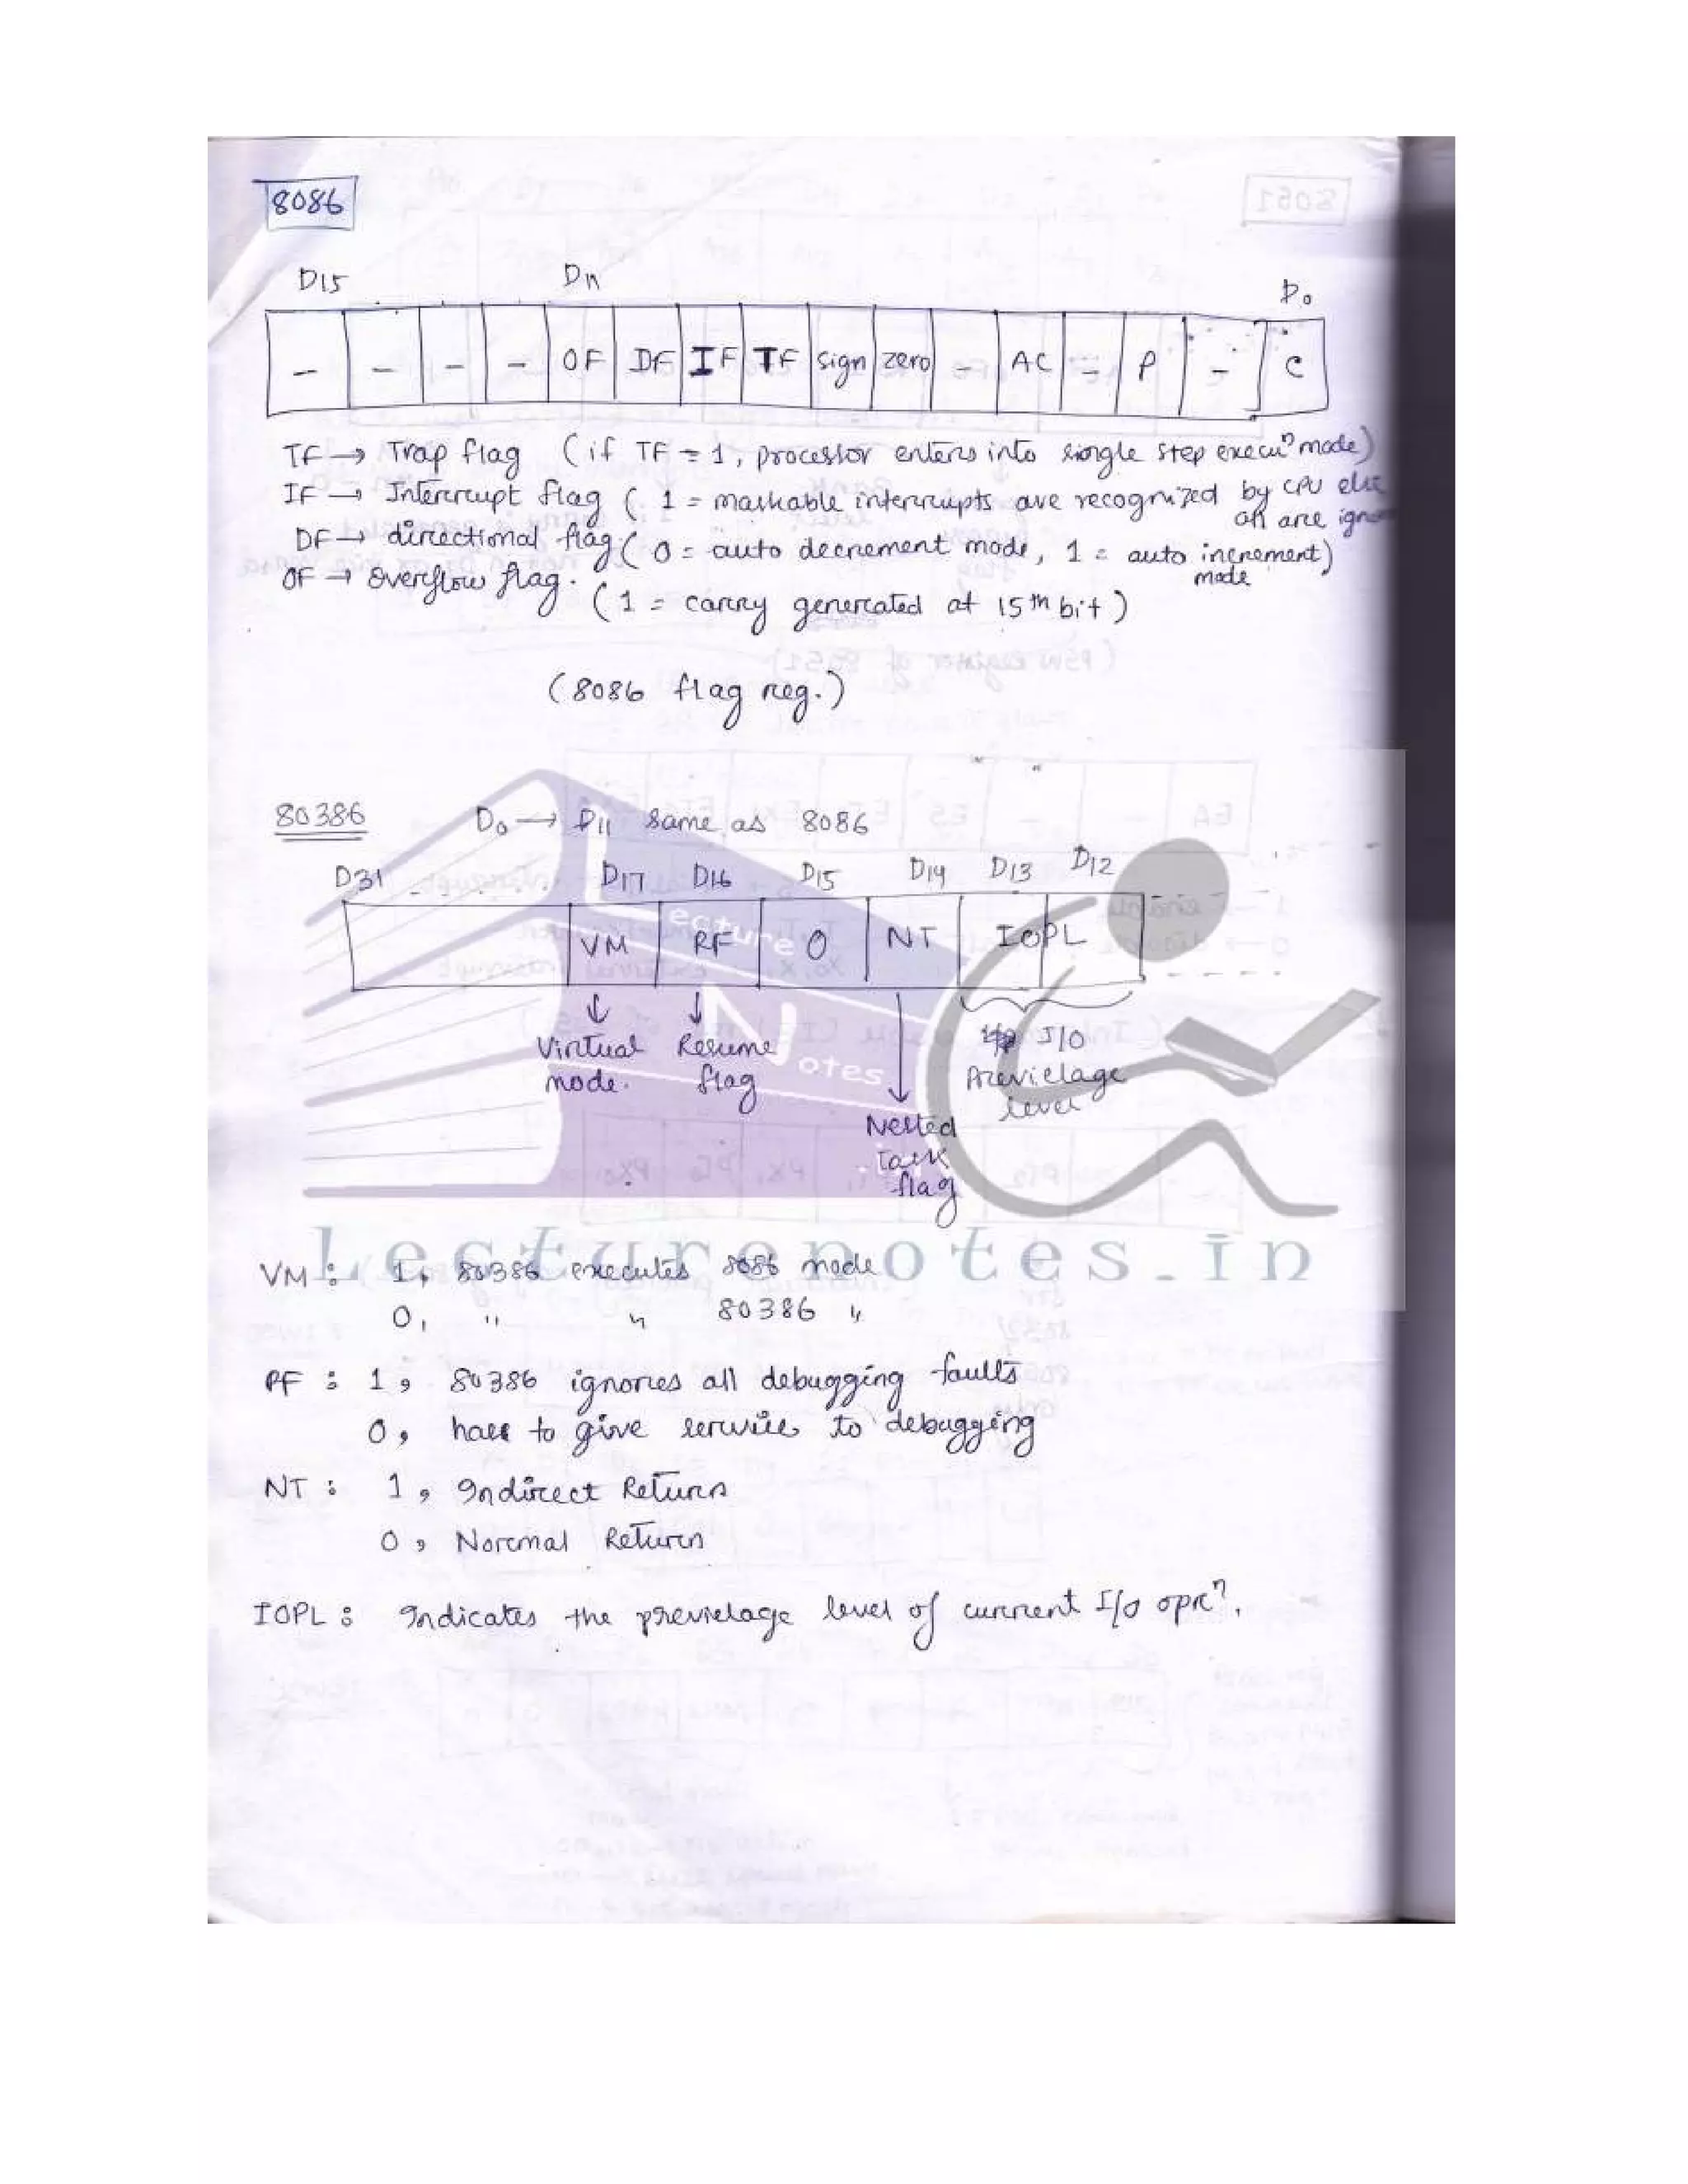 8086
D15 D11 D0
- - - - OF DF IF TF Sign zero - AC - P - C
TF → Trap flag (if TF = 1, processor enters into single step execuⁿ mode)
IF → Interrupt flag ( 1 = maskable interrupts are recognized by CPU else
all are
DF → directional flag ( 0 = auto decrement mode, 1 = auto increment)
mode
OF → Overflow flag. ( 1 = carry generated at 15th bit )
(8086 flag reg.)
80386 D0 → D11 Same as 8086
D31 - - - - D17 D16 D15 D14 D13 D12
VM RF 0 NT IOPL
Virtual Resume I/O
mode. flag Previelage
level
Nested
Task
flag
Lecture
Notes
Lecturenotes.in
VM : 1, 80386 executes 8086 mode
0, " " 80386 "
RF : 1, 80386 ignores all debugging faults
0, have to give service to debugging
NT : 1, Indirect Return
0, Normal Return
IOPL : Indicates the previelage level of current I/O oprⁿ.